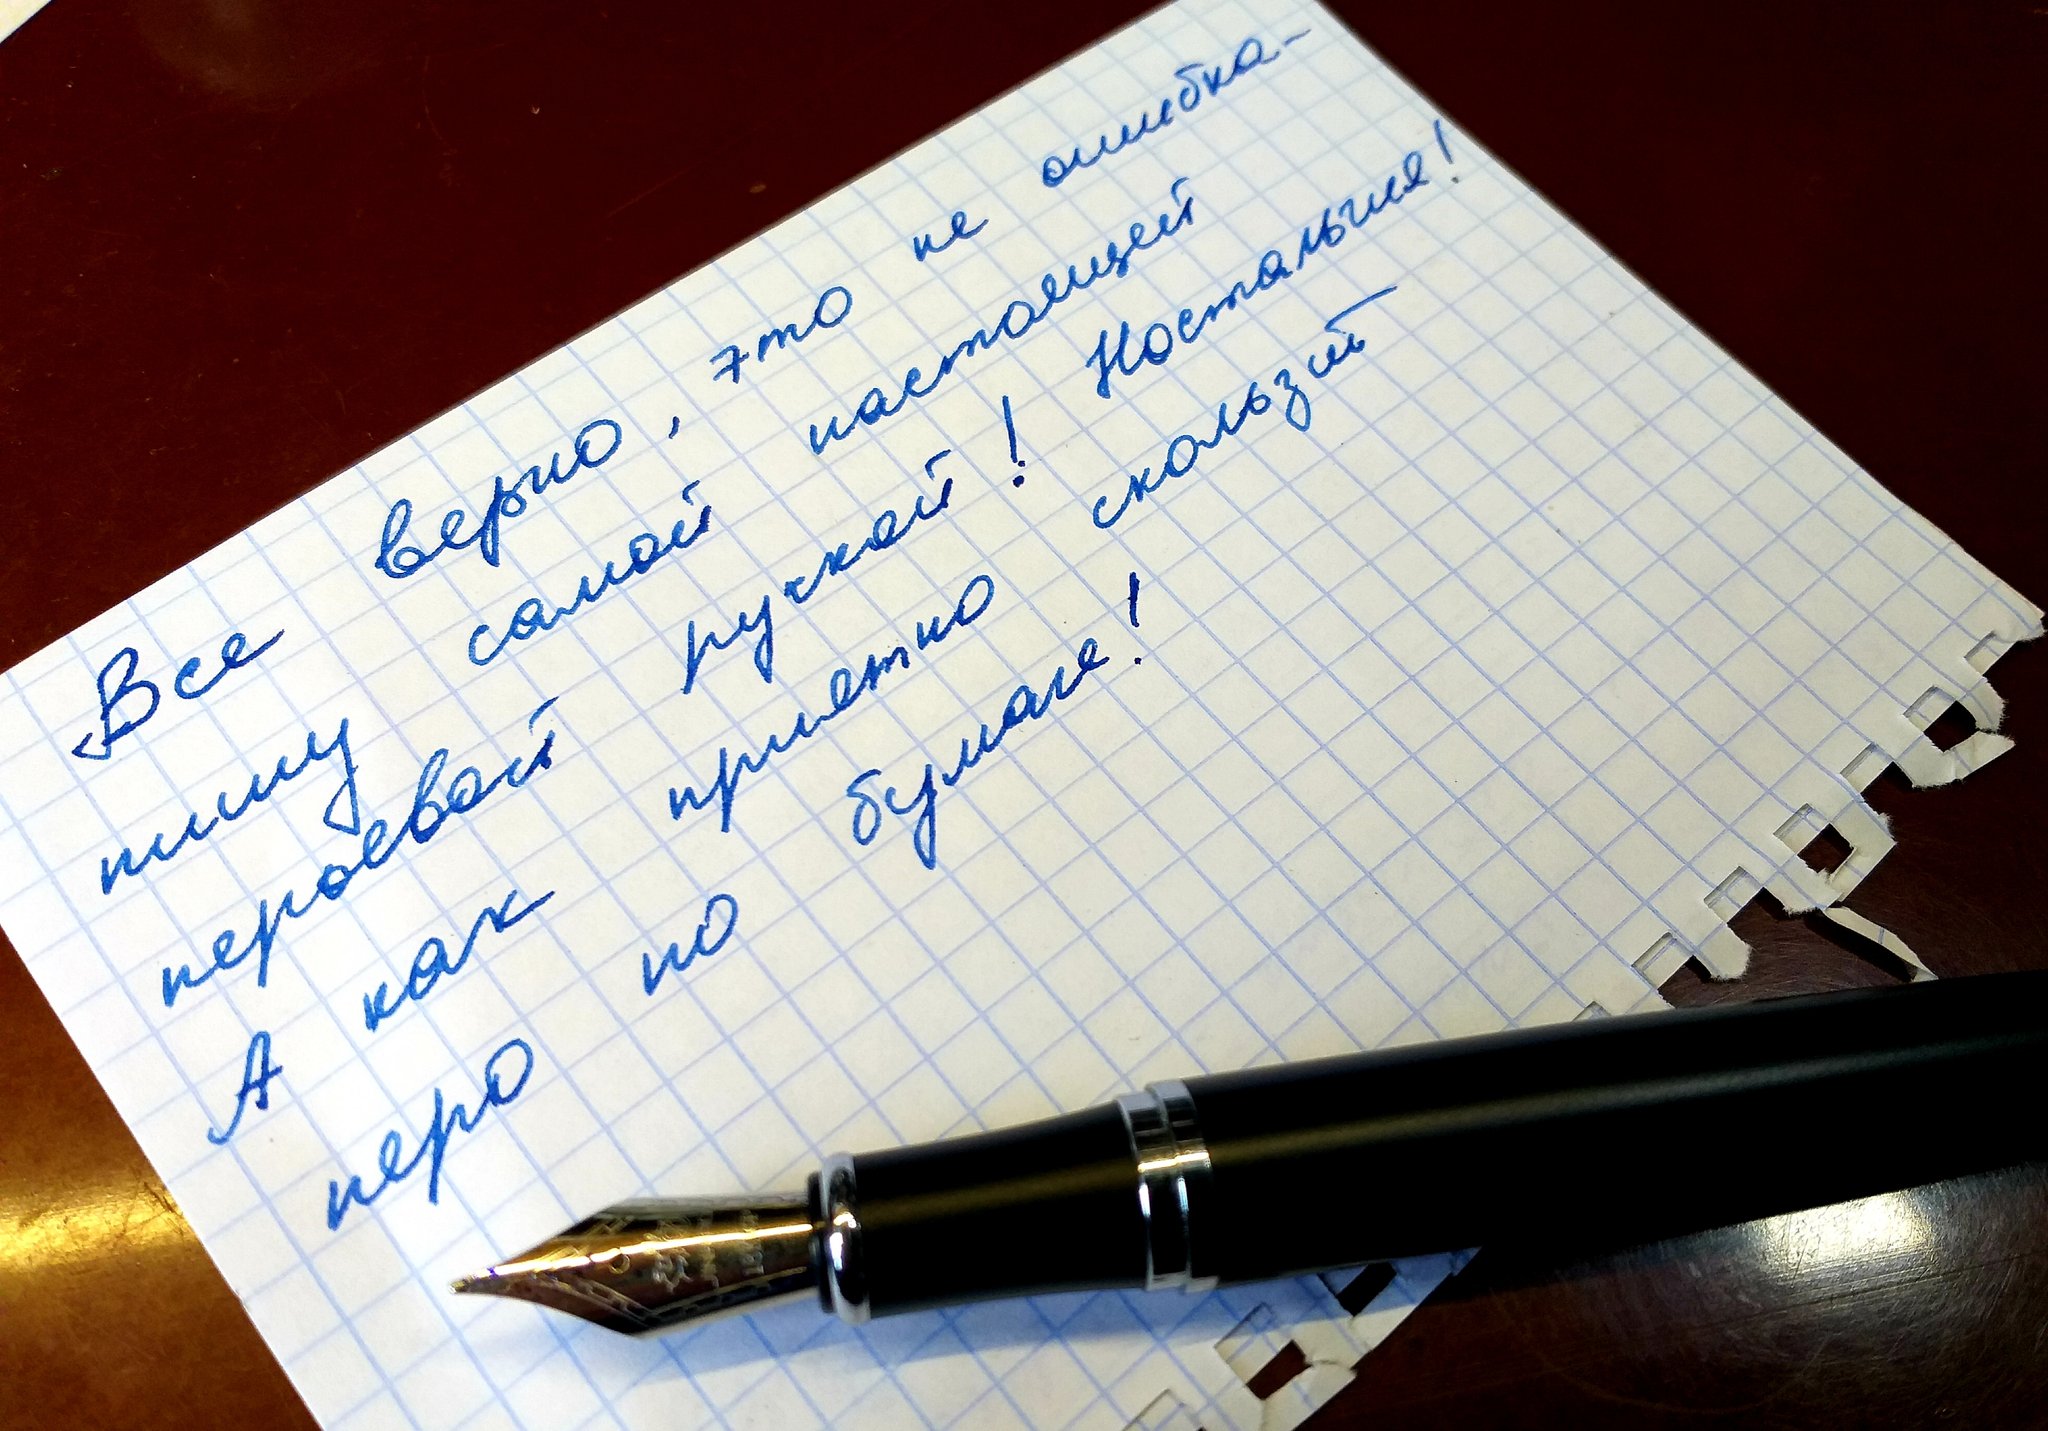 Все верно, это не ошибка-
пишу самой настоящей
перьевой ручкой! Ностальгия!
А как приятно скользит
перо по бумаге!